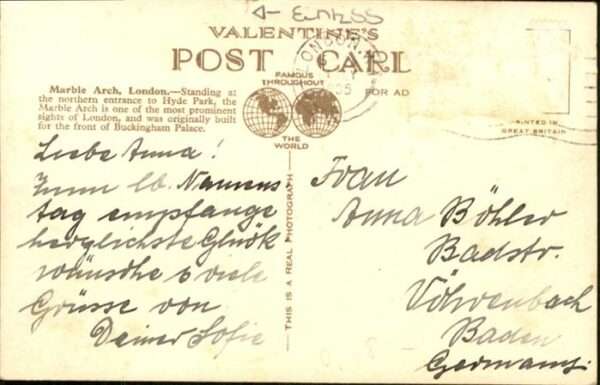 VALENTINE'S
POST CARD
FAMOUS
THROUGHOUT
THE
WORLD
LONDON
FOR AD
PRINTED IN
GREAT BRITAIN
Marble Arch, London.—Standing at
the northern entrance to Hyde Park, the
Marble Arch is one of the most prominent
sights of London, and was originally built
for the front of Buckingham Palace.
THIS IS A REAL PHOTOGRAPH
Liebe Anna!
Zum lb. Namens
tag empfange
herzlichste Glük
wünsche & viele
Grüsse von
Deiner Sofie
Frau
Anna Böhler
Badstr.
Vöhrenbach
Baden
Germany.